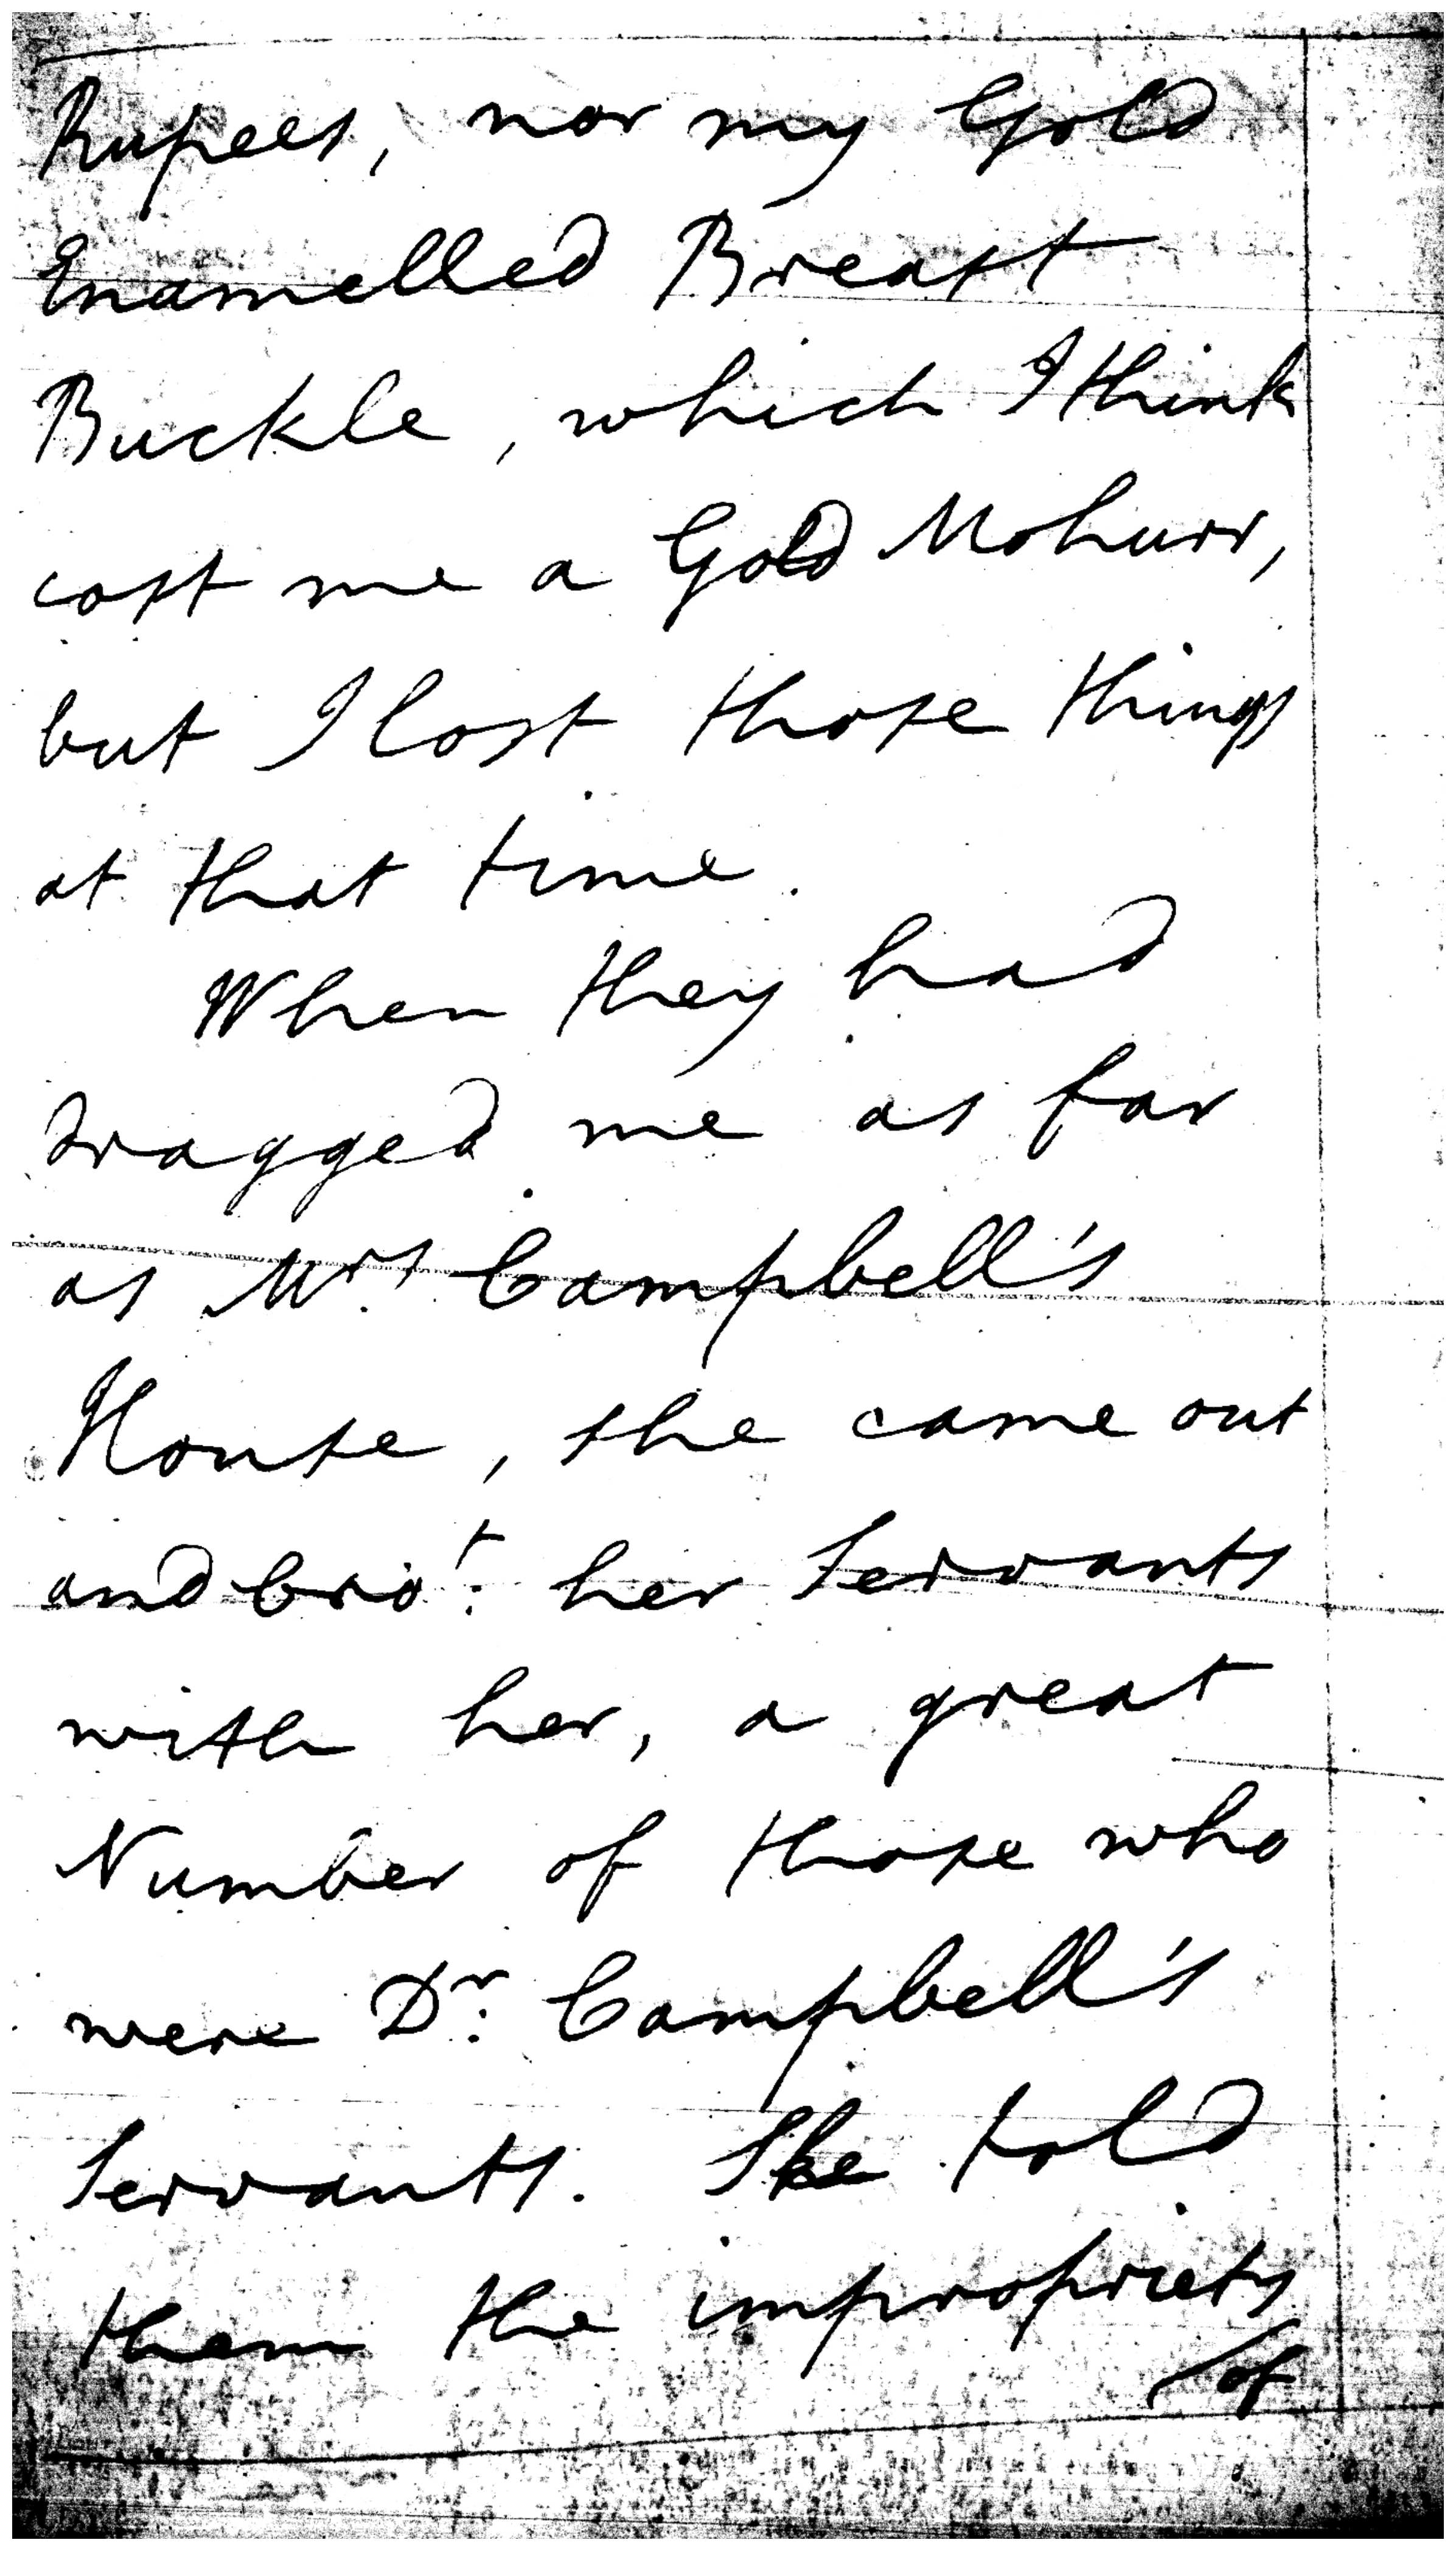 Rupees, nor my Gold
Enamelled Breast
Buckle, which I think
cost me a Gold Mohurr,
but I lost those things
at that time.
When they had
dragged me as far
as Mrs. Campbell's
House, she came out
and bro't. her Servants
with her, a great
Number of those who
were Dr. Campbell's
Servants. She told
them the impropriety
of